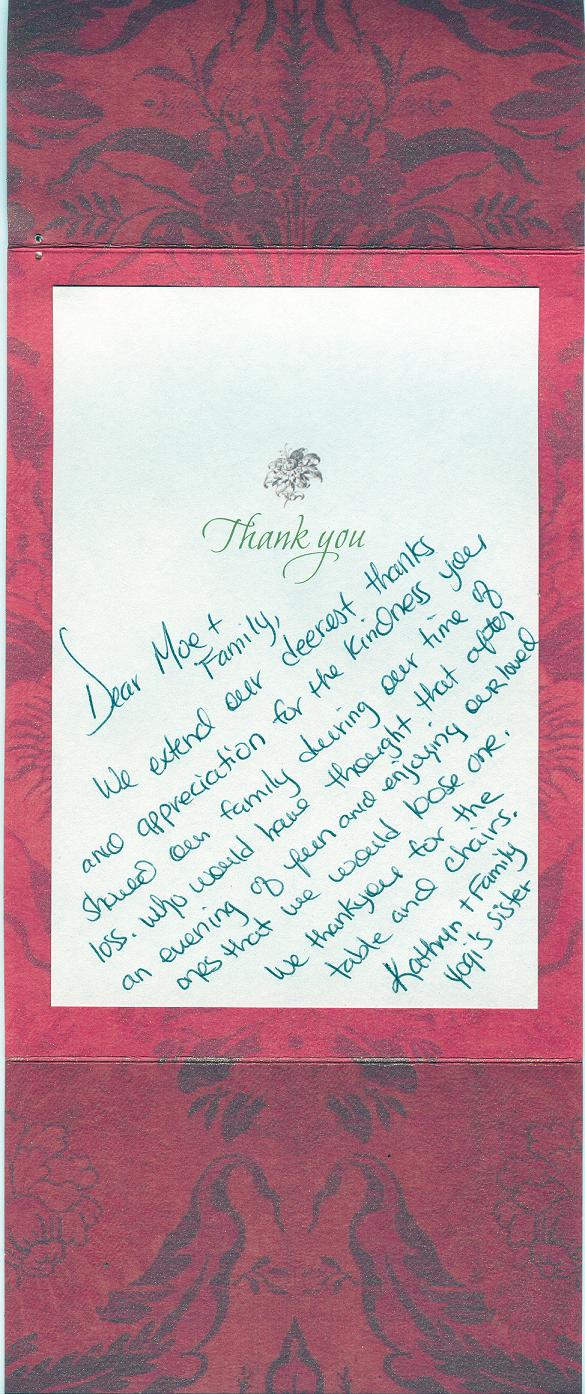 Thank you
Dear Moe +
Family,
We extend our deerest thanks
and appreciation for the kindness you
showed our family during our time of
loss. Who would have thought that after
an evening of fun and enjoying our loved
ones that we would loose one.
We thankyou for the
table and chairs.
Kathryn + Family
Yogi's sister